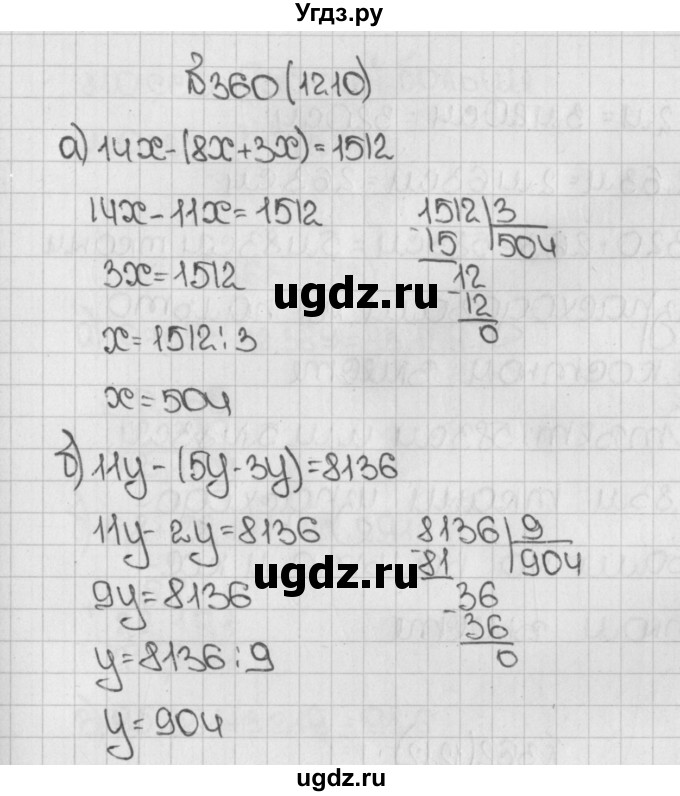 Угдз.ру
№360 (1210)
а) 14x-(8x+3x)=1512
14x-11x=1512
3x=1512
x=1512:3
x=504
1512 3
-15 504
12
-12
0
ugdz.ru
б) 11y-(5y-3y)=8136
11y-2y=8136
9y=8136
y=8136:9
y=904
8136 9
-81 904
36
-36
0
ugdz.ru
ugdz.ru